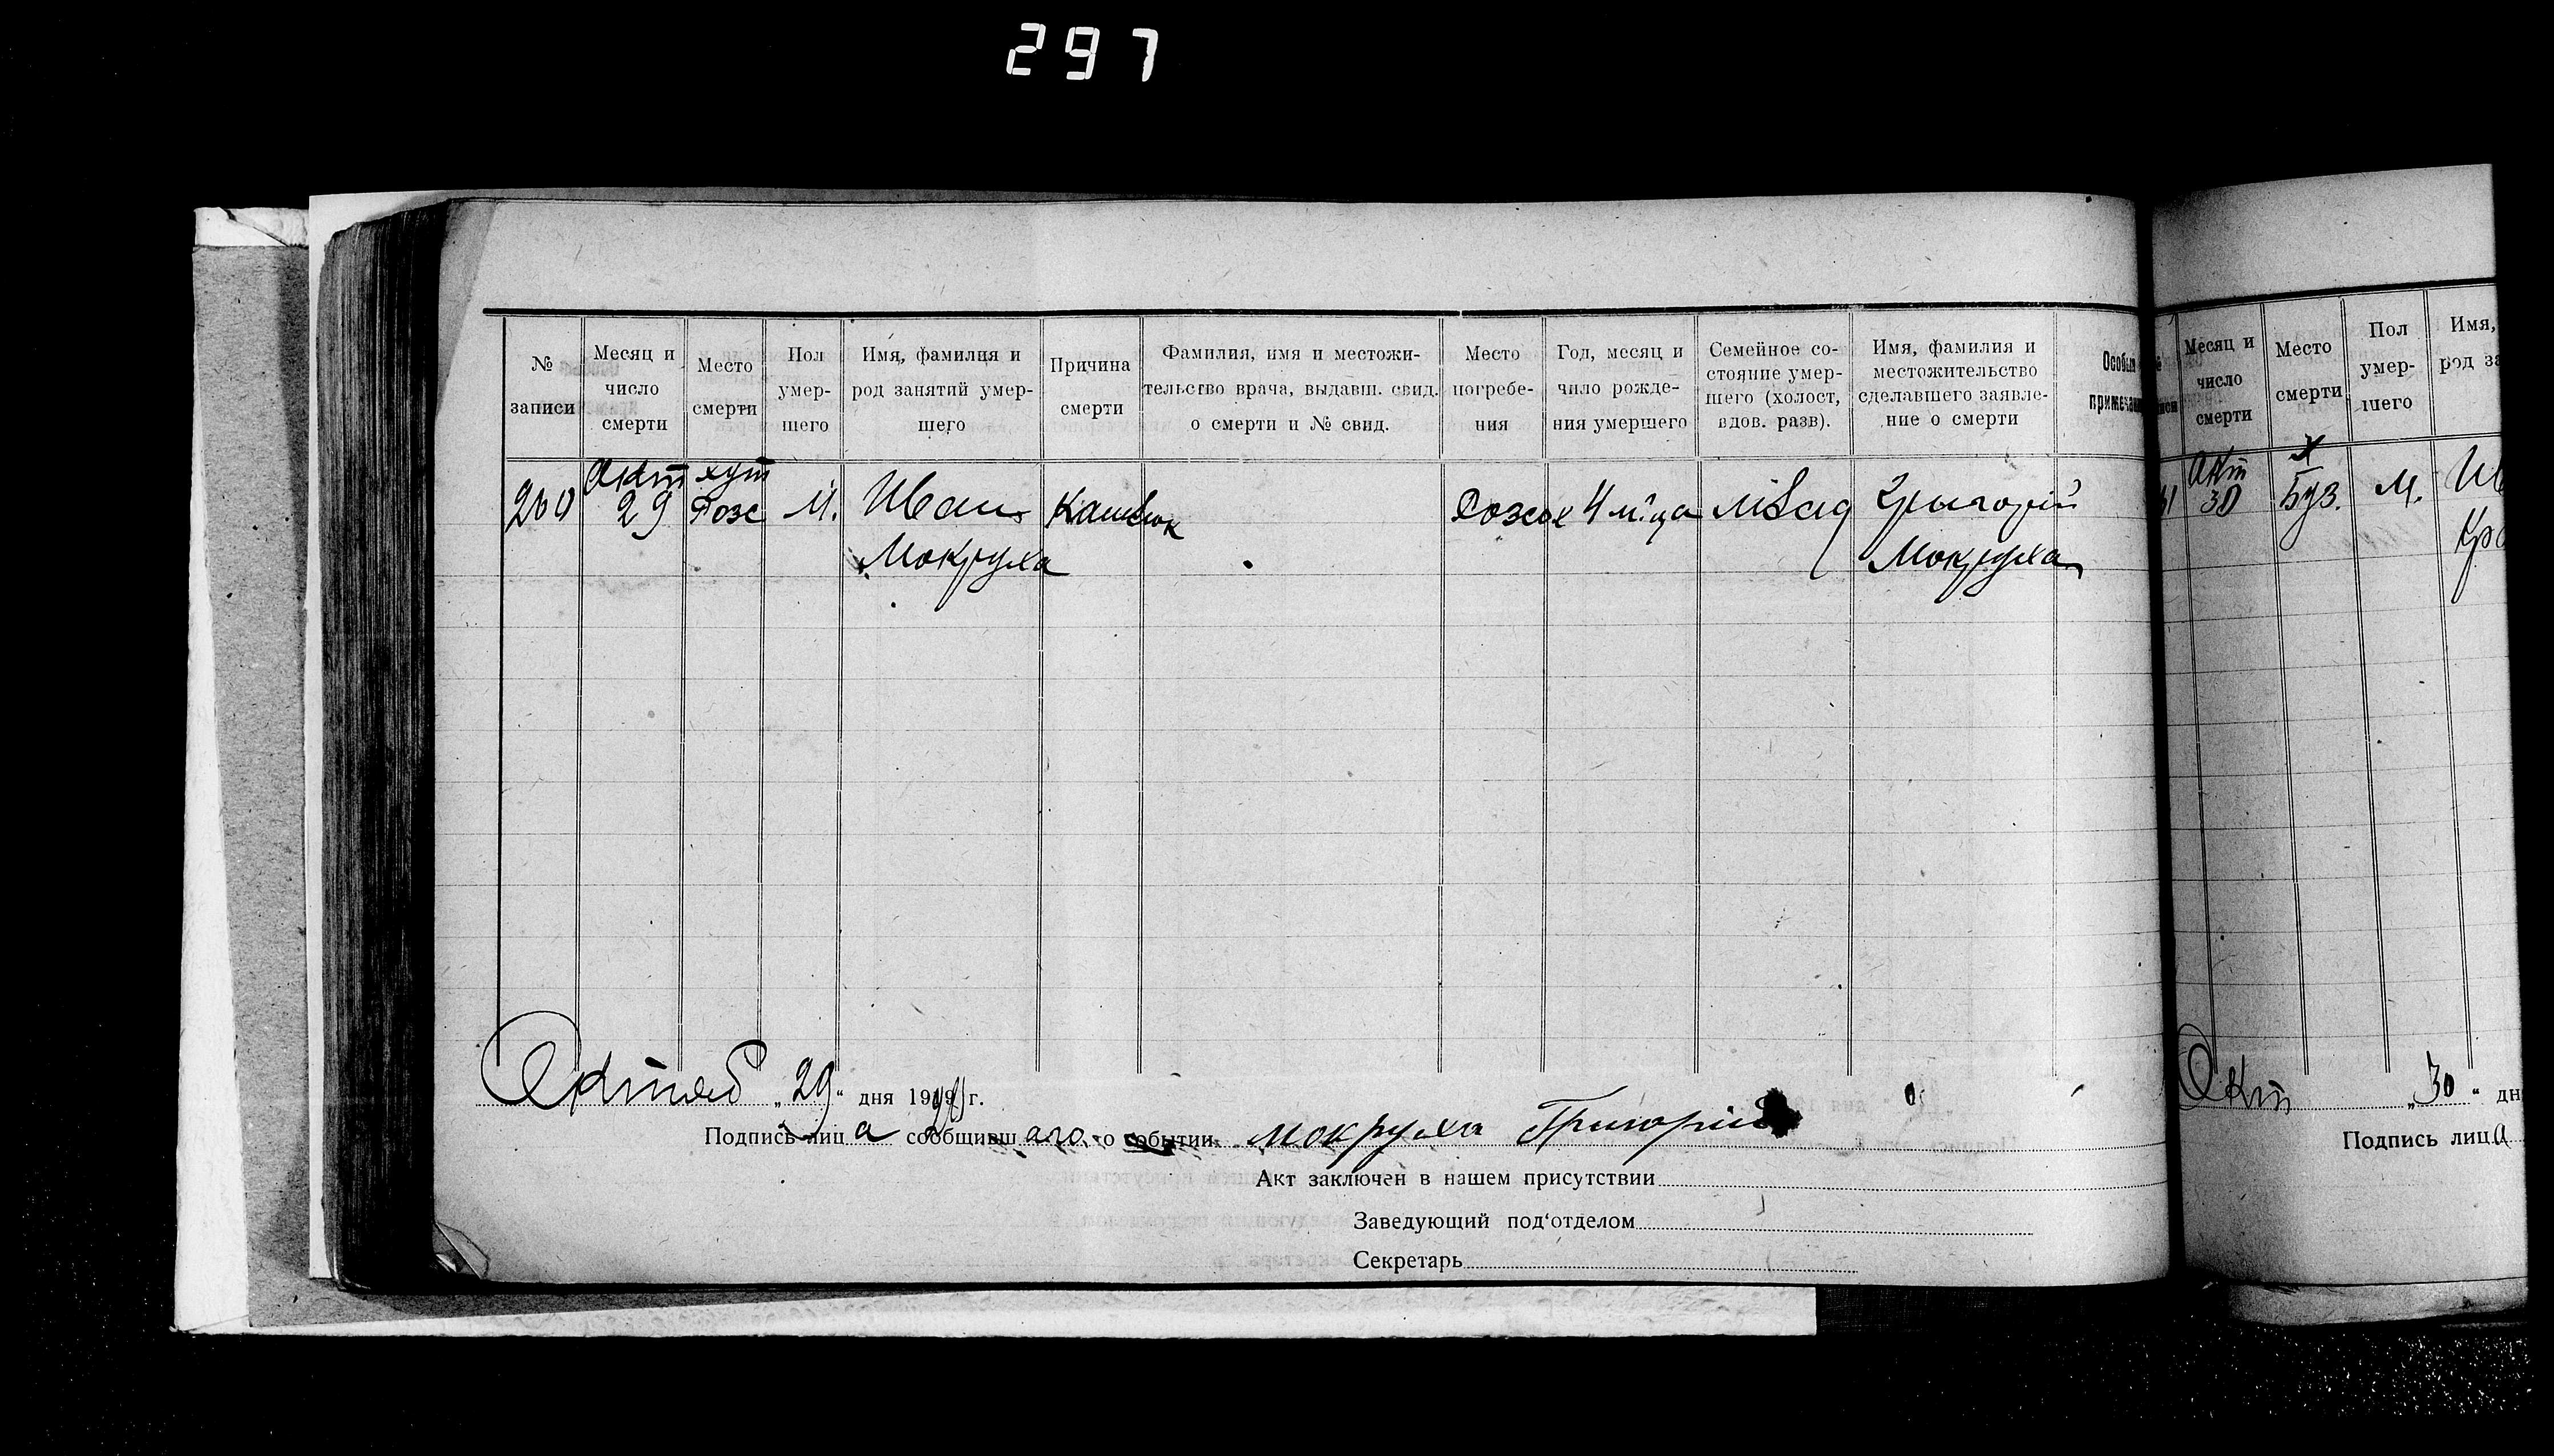 297
№ записи
Месяц и число смерти
Место смерти
Пол умер-шего
Имя, фамилия и род занятий умер-шего
Причина смерти
Фамилия, имя и местожи-тельство врача, выдавш. свид. о смерти и № свид.
Место погребе-ния
Год, месяц и число рожде-ния умершего
Семейное со-стояние умер-шего (холост, вдов. разв).
Имя, фамилия и местожительство сделавшего заявле-ние о смерти
260
Окт 29
хут
М.
Иван
Мокруха
Кашлюк
4 м-ца
Григорій
Мокруха
Октяб „29“ дня 19 г.
Подпись лица сообщивш аго о событии Мокруха Григорій
Акт заключен в нашем присутствии
Заведующий под'отделом
Секретарь
Месяц и число смерти
Место смерти
Пол умер-шего
Имя,
род за
Окт 30
Х Буз.
М.
Ив
Кра
Окт „30“ дн
Подпись лица